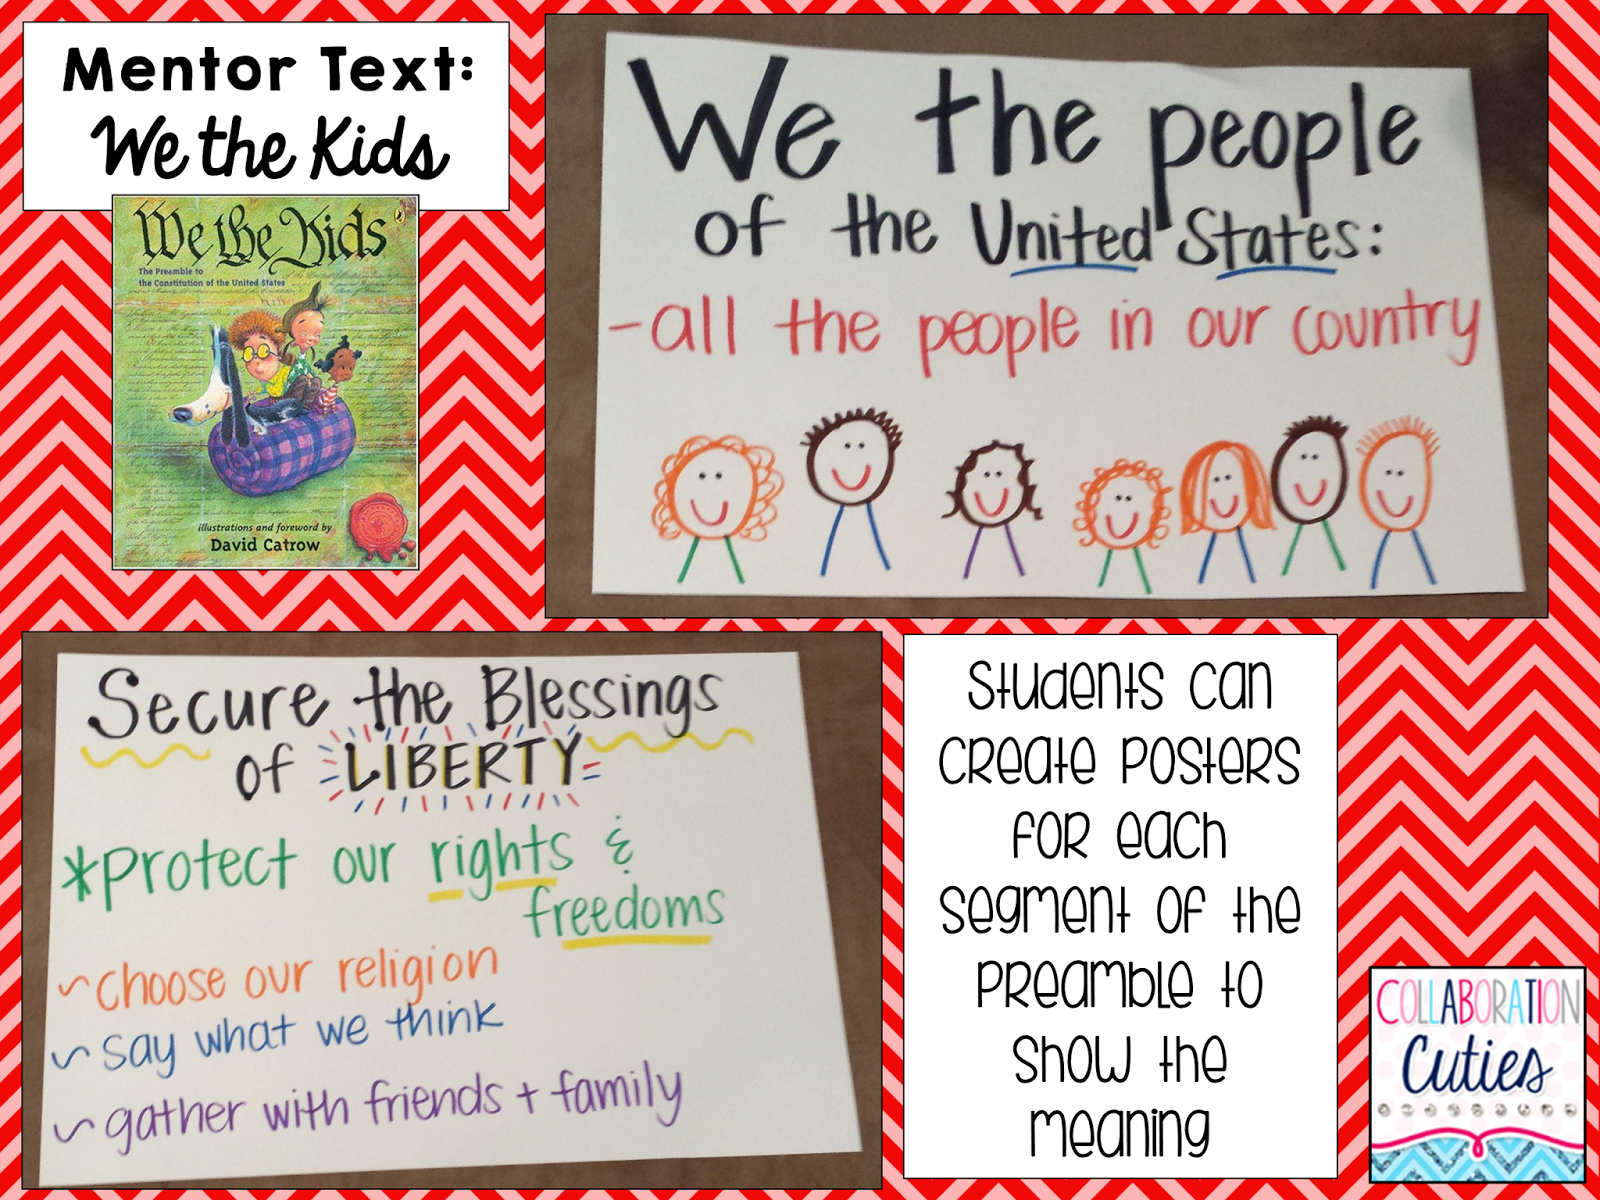 Mentor Text:
We the Kids
We the Kids
The Preamble to
the Constitution of the United States
illustrations and foreword by
David Catrow
We the people
of the United States:
-all the people in our country
Secure the Blessings
of LIBERTY
*Protect our rights &
freedoms
~choose our religion
~say what we think
~gather with friends + family
Students can
create posters
for each
segment of the
Preamble to
show the
meaning
COLLABORATION
Cuties